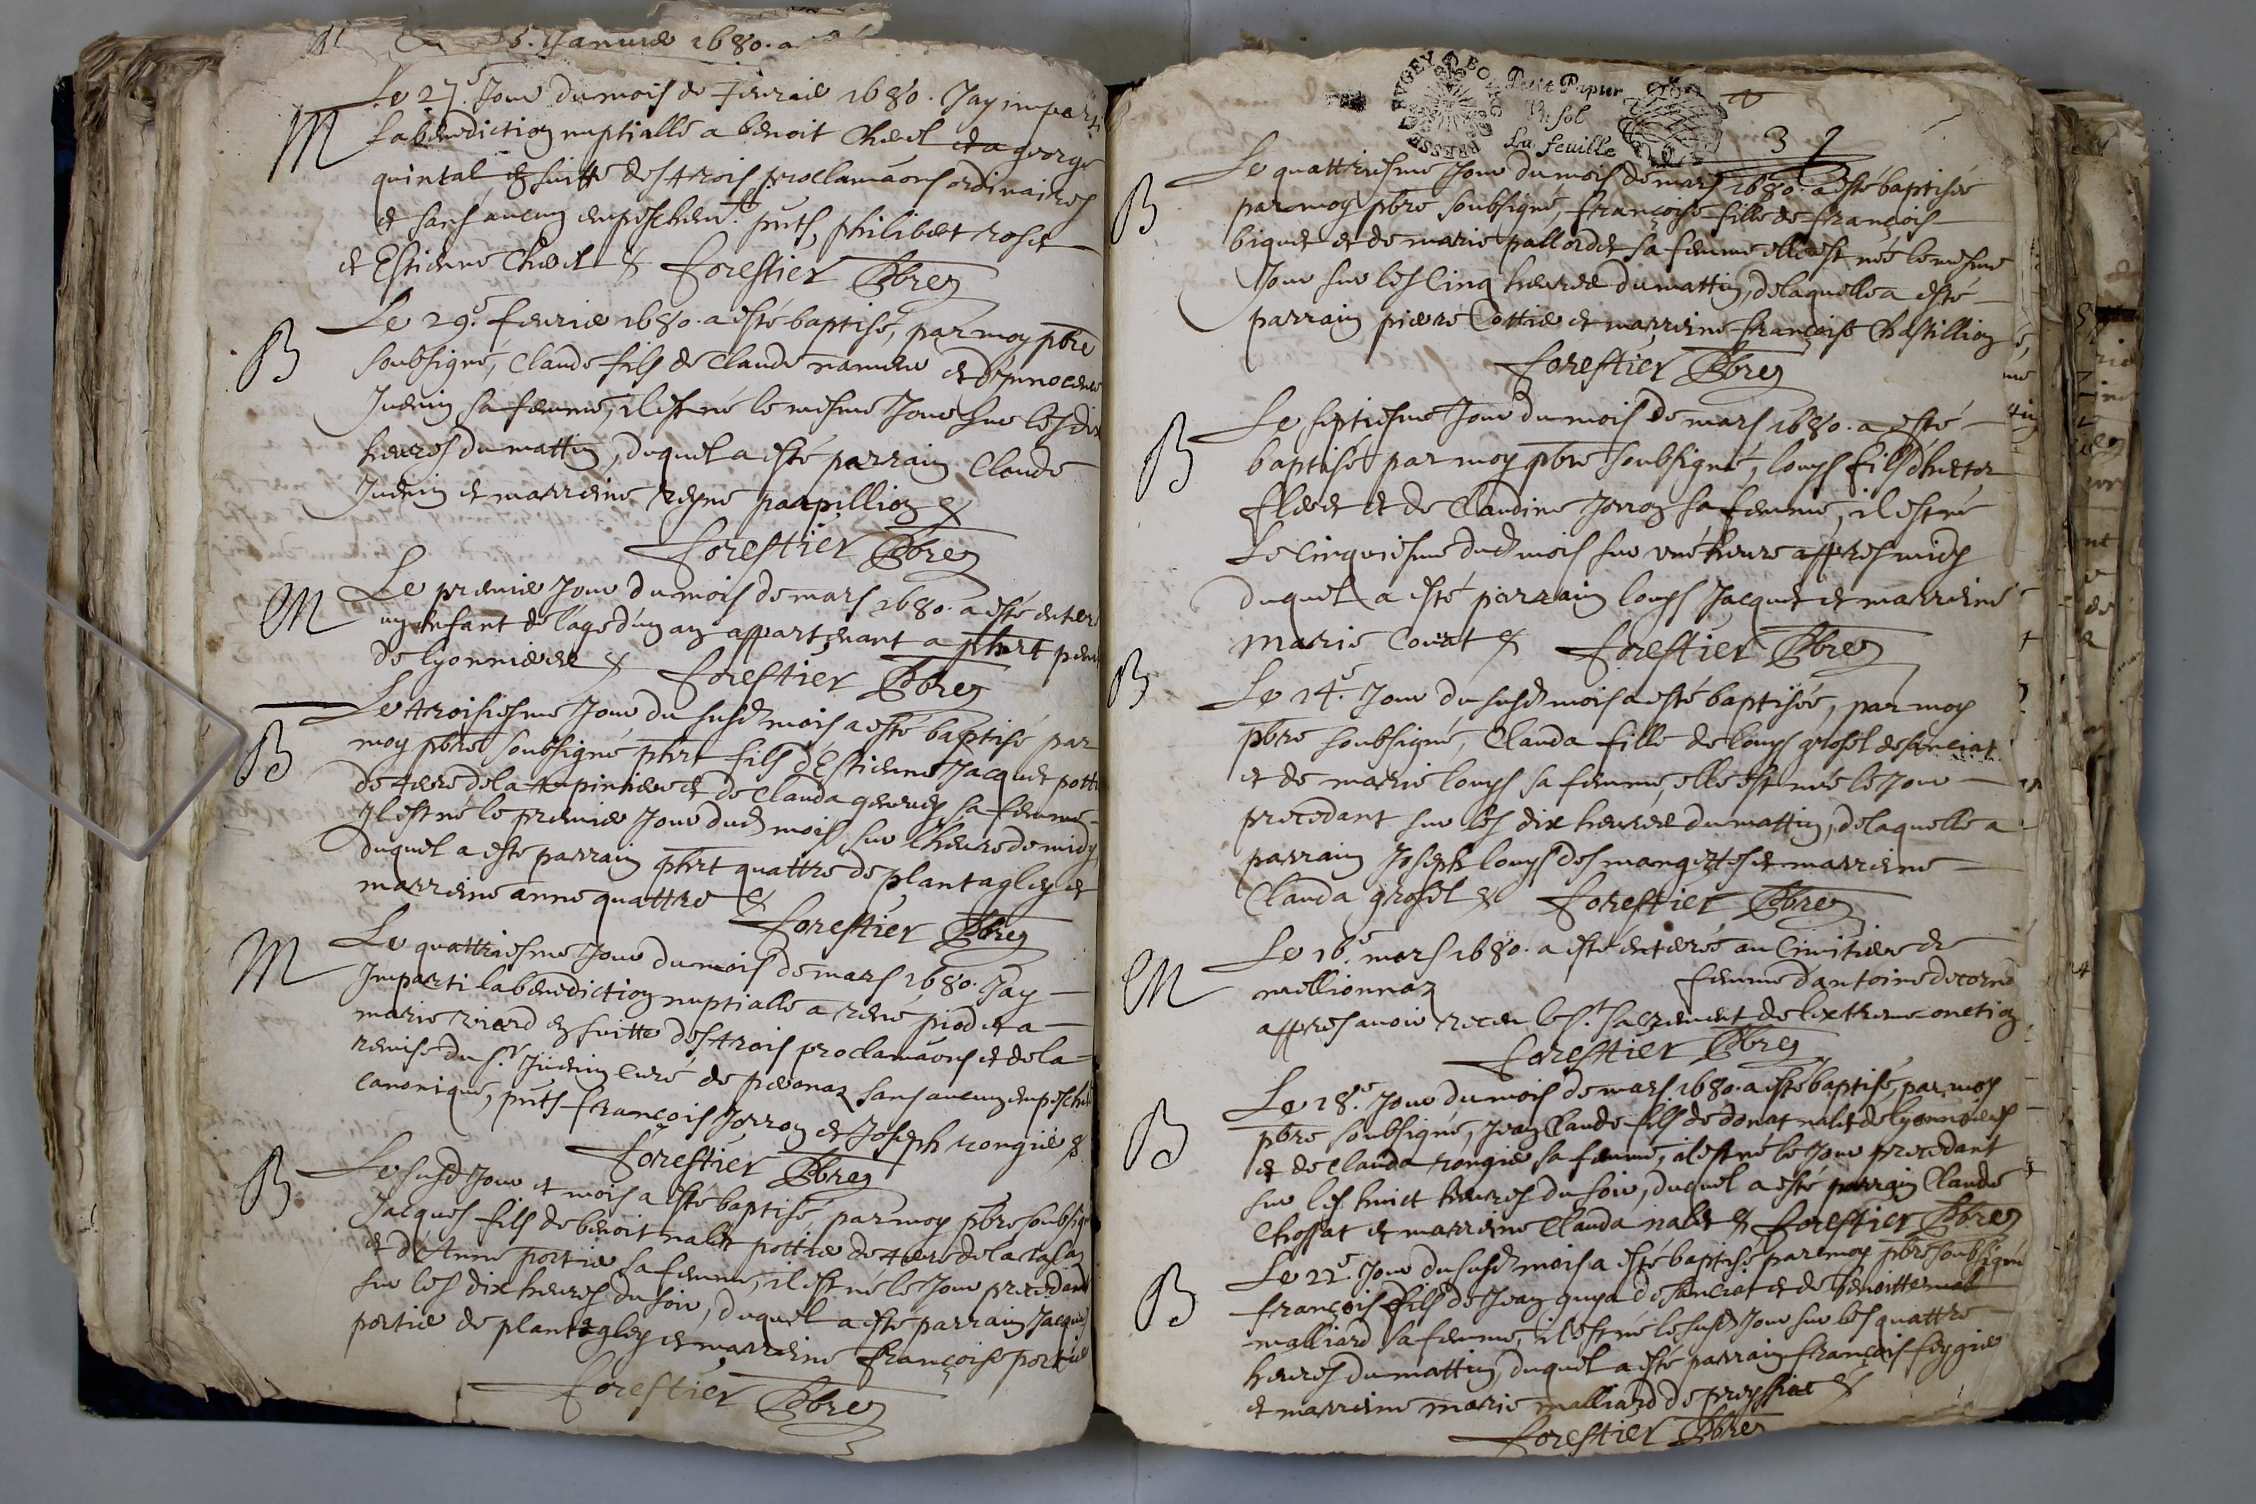 5. Januie 1680. a
Le 27e Jour du mois de feurier 1680. Jay imparti
M
la benediction nuptialle a benoit Chaël et a george
quintal, en suitte des trois proclamaons ordinaires
et sans aucun empeschemt. pnts, philibert roset
et Estienne Chaël & forestier pbre
Le 29e. feurier 1680. a esté baptisé, par moy pbre
B
soubsigné, Claude fils de Claude et d'Innocence
Juenin sa femme, il est né le mesme Jour sur les dix
heures du mattin, duquel a esté parrain Claude
Juenin et marreine reyne papillion &
forestier pbre
Le premier Jour du mois de mars 1680. a esté enterré
M
un enfant de l'age d'un an appartenant a phrt
de lyonnieres & forestier pbre
Le troisiesme Jour du susd mois a esté baptisé par
B
moy pbre soubsigné phrt fils d'Estienne Jacquet pottier
de terre de la et de Clauda sa femme
Il est né le premier Jour dud mois sur l'heure de midy
duquel a esté parrain phrt quattre de plantagley et
marreine anne quattre &
forestier pbre
Le quattriesme Jour du mois de mars 1680. Jay
M
Imparti la benediction nuptialle a rené piod et a
marie riard en suitte des trois proclamaons et de la
remise du sr. Juenin curé de peronaz sans aucun empeschemt
canonique, pnts françois Jorron et Joseph rongier &
forestier pbre
Le susd Jour et mois a esté baptisé, par moy pbre soubsigné
B
Jacques fils de benoit nalet pottier de terre de la
et d'Anne portier sa femme, il est né le Jour precedant
sur les dix heures du soir, duquel a esté parrain Jacques
portier de plantagley et marreine françoise portier
forestier pbre
BVGEY BOVRG BRESSE
Petit Papier
Vn sol
La feuille
3
Le quattriesme Jour du mois de mars 1680. a esté baptisée
B
par moy pbre soubsigné, françoise fille de françois
biquet et de marie pallordet sa femme elle est née le mesme
Jour sur les cinq heures du mattin, delaquelle a esté
parrain pierre Cottier et marreine françoise Chastillion
forestier pbre
Le septiesme Jour du mois de mars 1680. a esté
B
baptisé par moy pbre soubsigné, louys fils d'hector
et de Claudine Jorron sa femme, il est né
Le cinquiesme dud mois sur une heure appres midy
duquel a esté parrain louys Jacquet et marreine
marie Courat & forestier pbre
B
Le 14e. Jour du susd mois a esté baptisée, par moy
pbre soubsigné, Clauda fille de louys grosel de sanciat
et de marie louys sa femme, elle est née le Jour
precedant sur les dix heures du mattin, delaquelle a
parrain Joseph louys des mangettes et marreine
Clauda grosel & forestier pbre
Le 16e. mars 1680. a esté enterrée au cimitiere de
M
meillionnaz femme d'antoine decorne
appres avoir receu le st. sacrement de l'extreme onction
forestier pbre
Le 18e. Jour du mois de mars 1680. a esté baptisé, par moy
B
pbre soubsigné, Jean Claude fils de donat nalet de lyonnieres
et de Clauda rongier sa femme, il est né le Jour precedant
sur les huict heures du soir, duquel a esté parrain Claude
Chossat et marreine Clauda nalet & forestier pbre
Le 22e. Jour du susd mois a esté baptisé par moy pbre soubsigné
B
françois fils de Jean guya de sanciat et de benoitte
malliard sa femme, il est né le susd Jour sur les quattre
heures du mattin, duquel a esté parrain françois feygier
et marreine marie malliard de &
forestier pbre